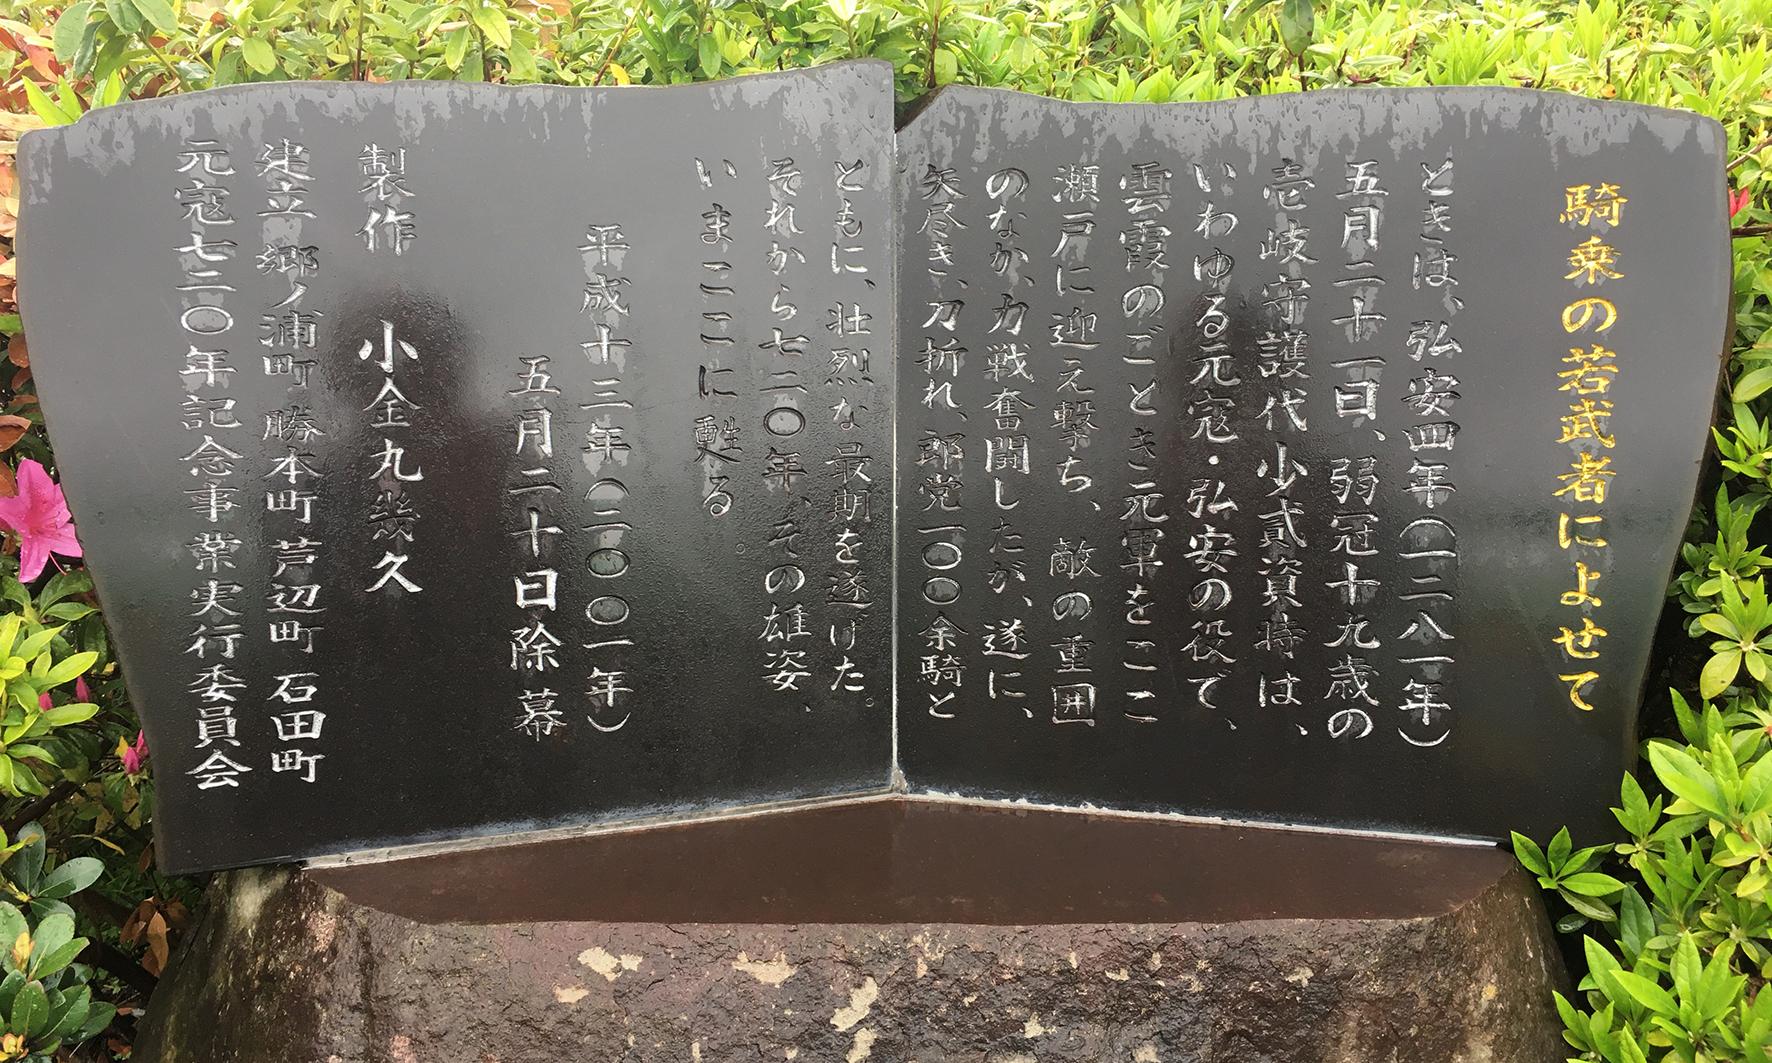 騎乗の若武者によせて
ときは、弘安四年(一二八一年)
五月二十一日、弱冠十九歳の
壱岐守護代少貳資時は、
いわゆる元寇・弘安の役で、
雲霞のごとき元軍をここ
瀬戸に迎え撃ち、敵の重囲
のなか、力戦奮闘したが、遂に、
矢尽き、刀折れ、郎党一〇〇余騎と
ともに、壮烈な最期を遂げた。
それから七二〇年、その雄姿、
いまここに甦る。
平成十三年(二〇〇一年)
五月二十日除幕
製作 小金丸幾久
建立 郷ノ浦町 勝本町 芦辺町 石田町
元寇七二〇年記念事業実行委員会